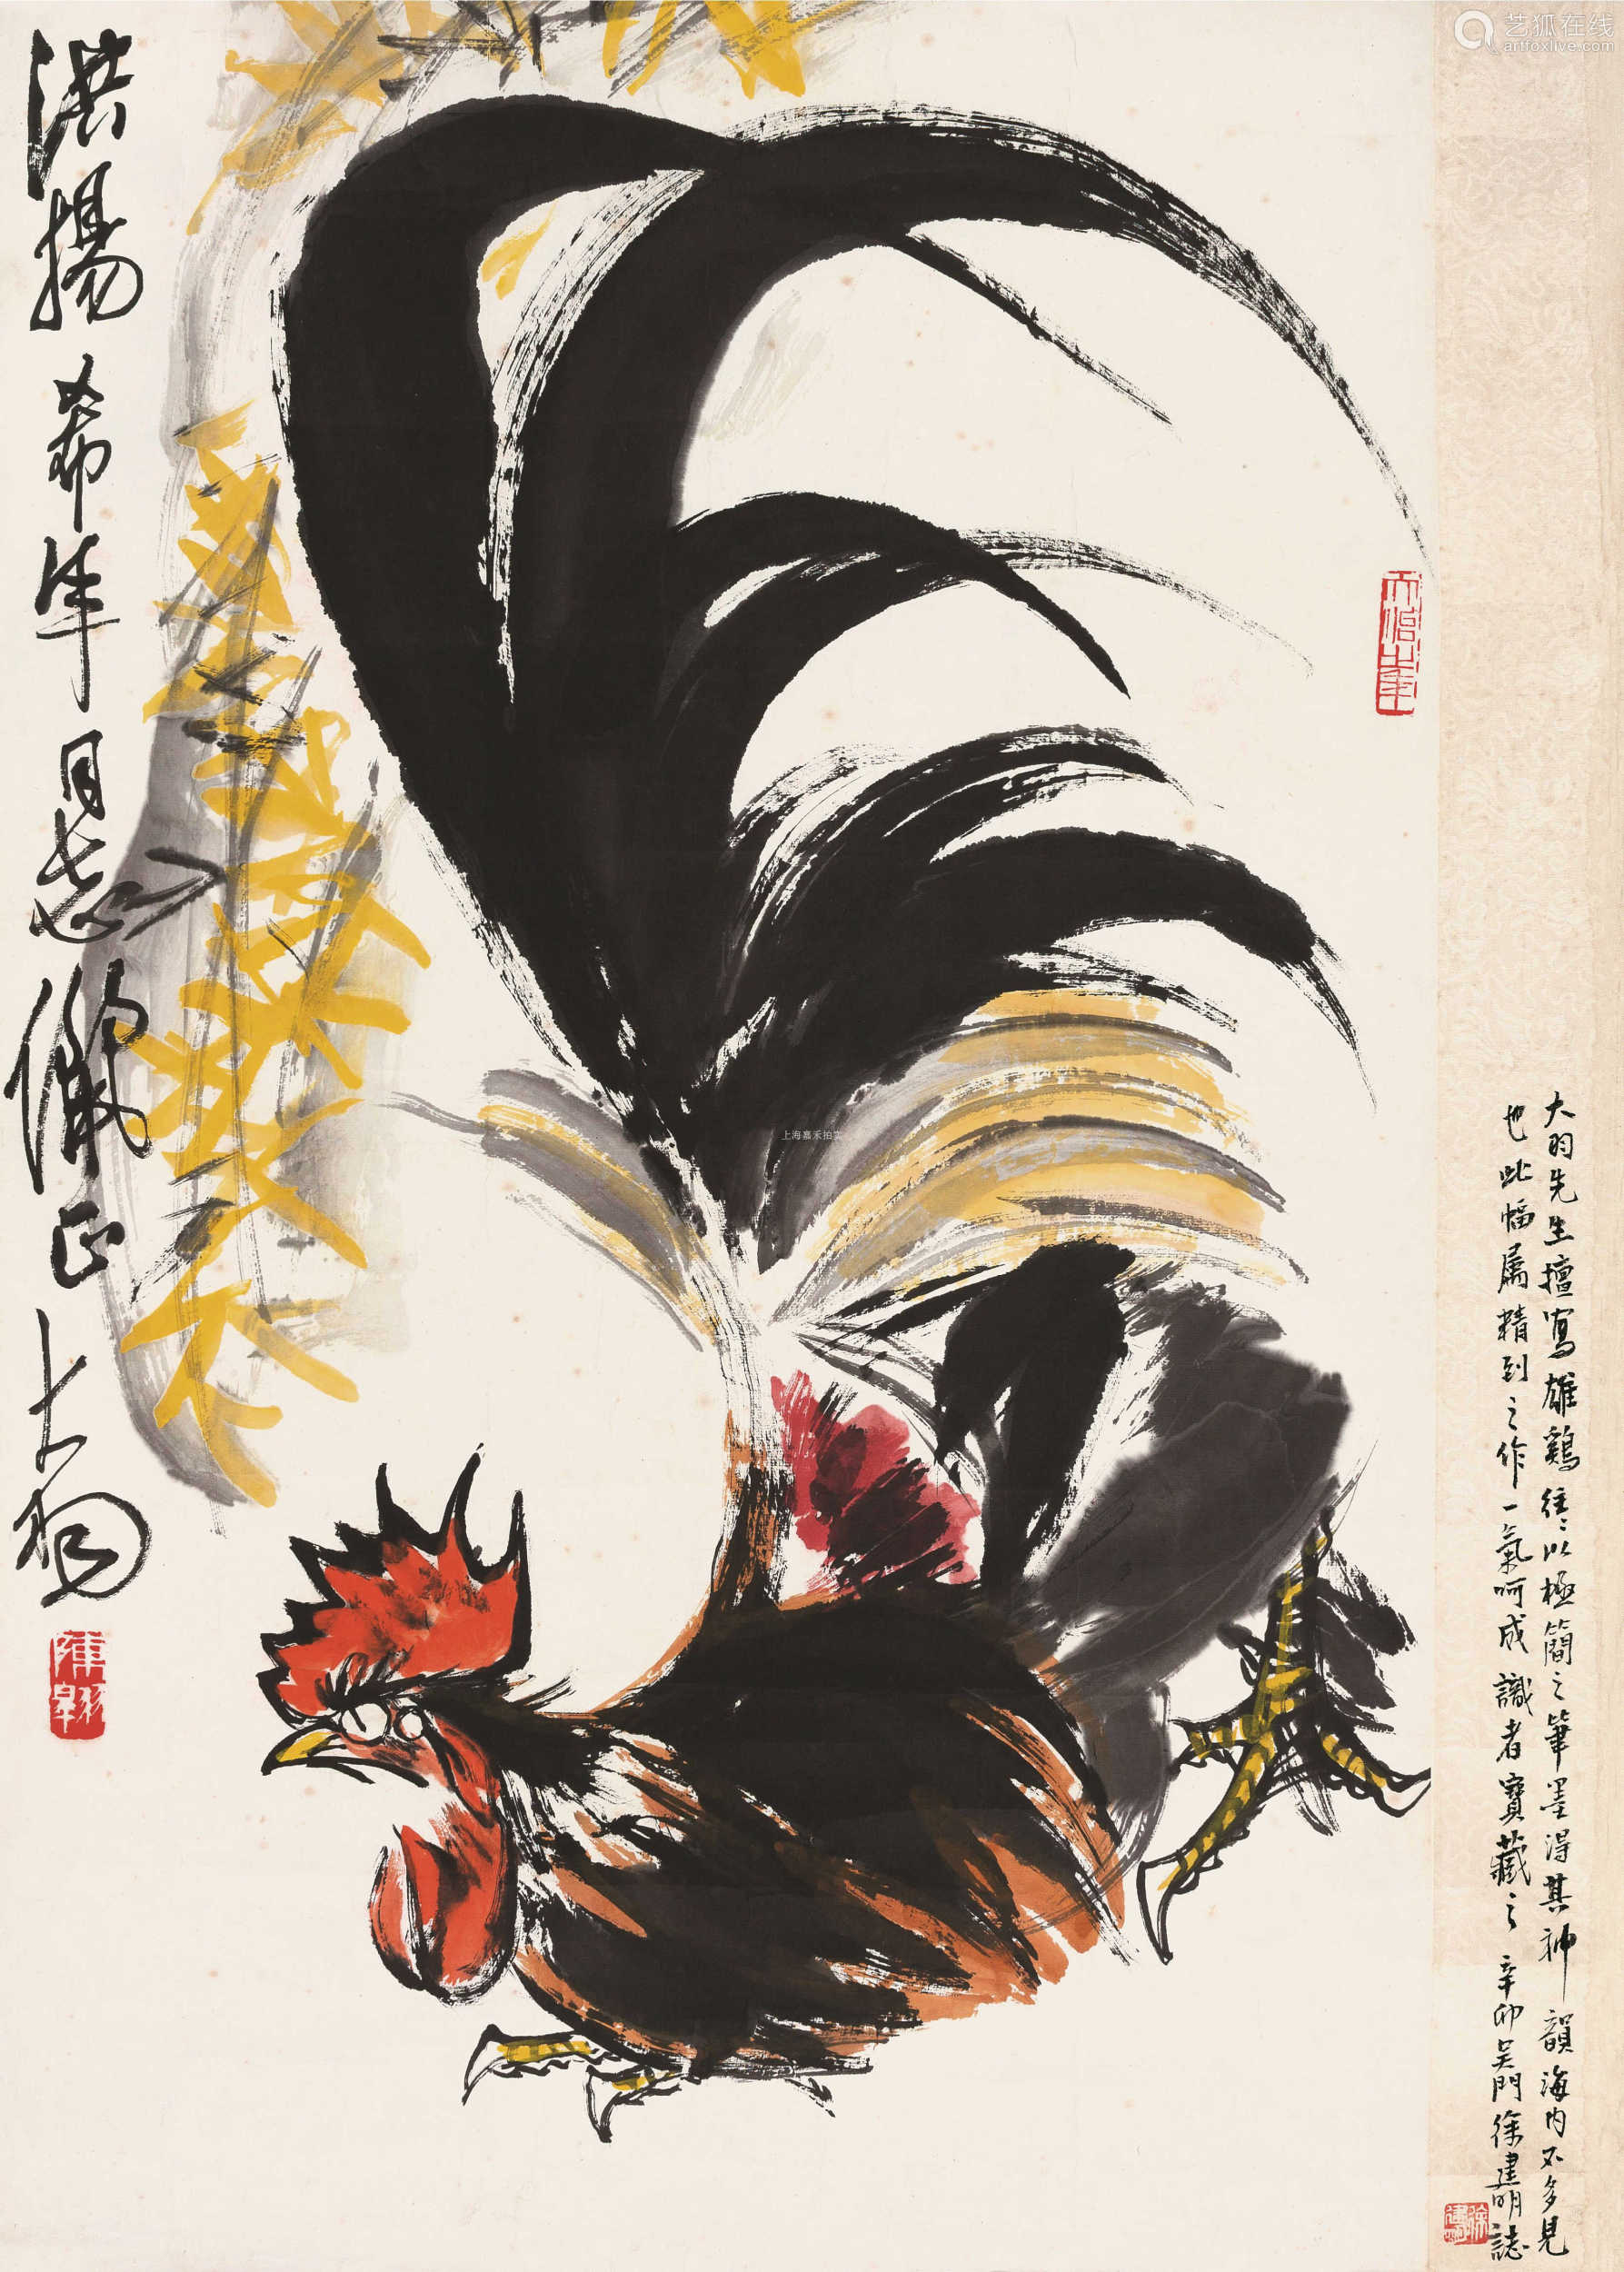 艺狐在线
artfoxlive.com
大羽先生擅寫雄鷄往往以極簡之筆墨得其神韻海内不多見
也此幅属精到之作一氣呵成識者寶藏之辛卯吴門徐建明誌
洪揚希準同志儷正大羽
陳翔
上海嘉禾拍卖